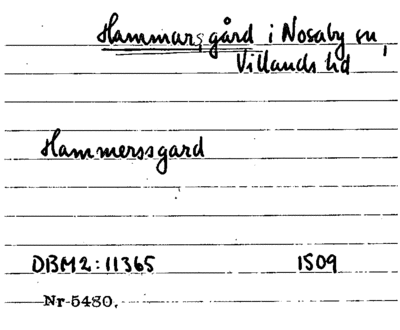 Hammarsgård i Nosaby sn,
Villands hd
Hammerssgard
DBM2:11365 1509
Nr 5480.